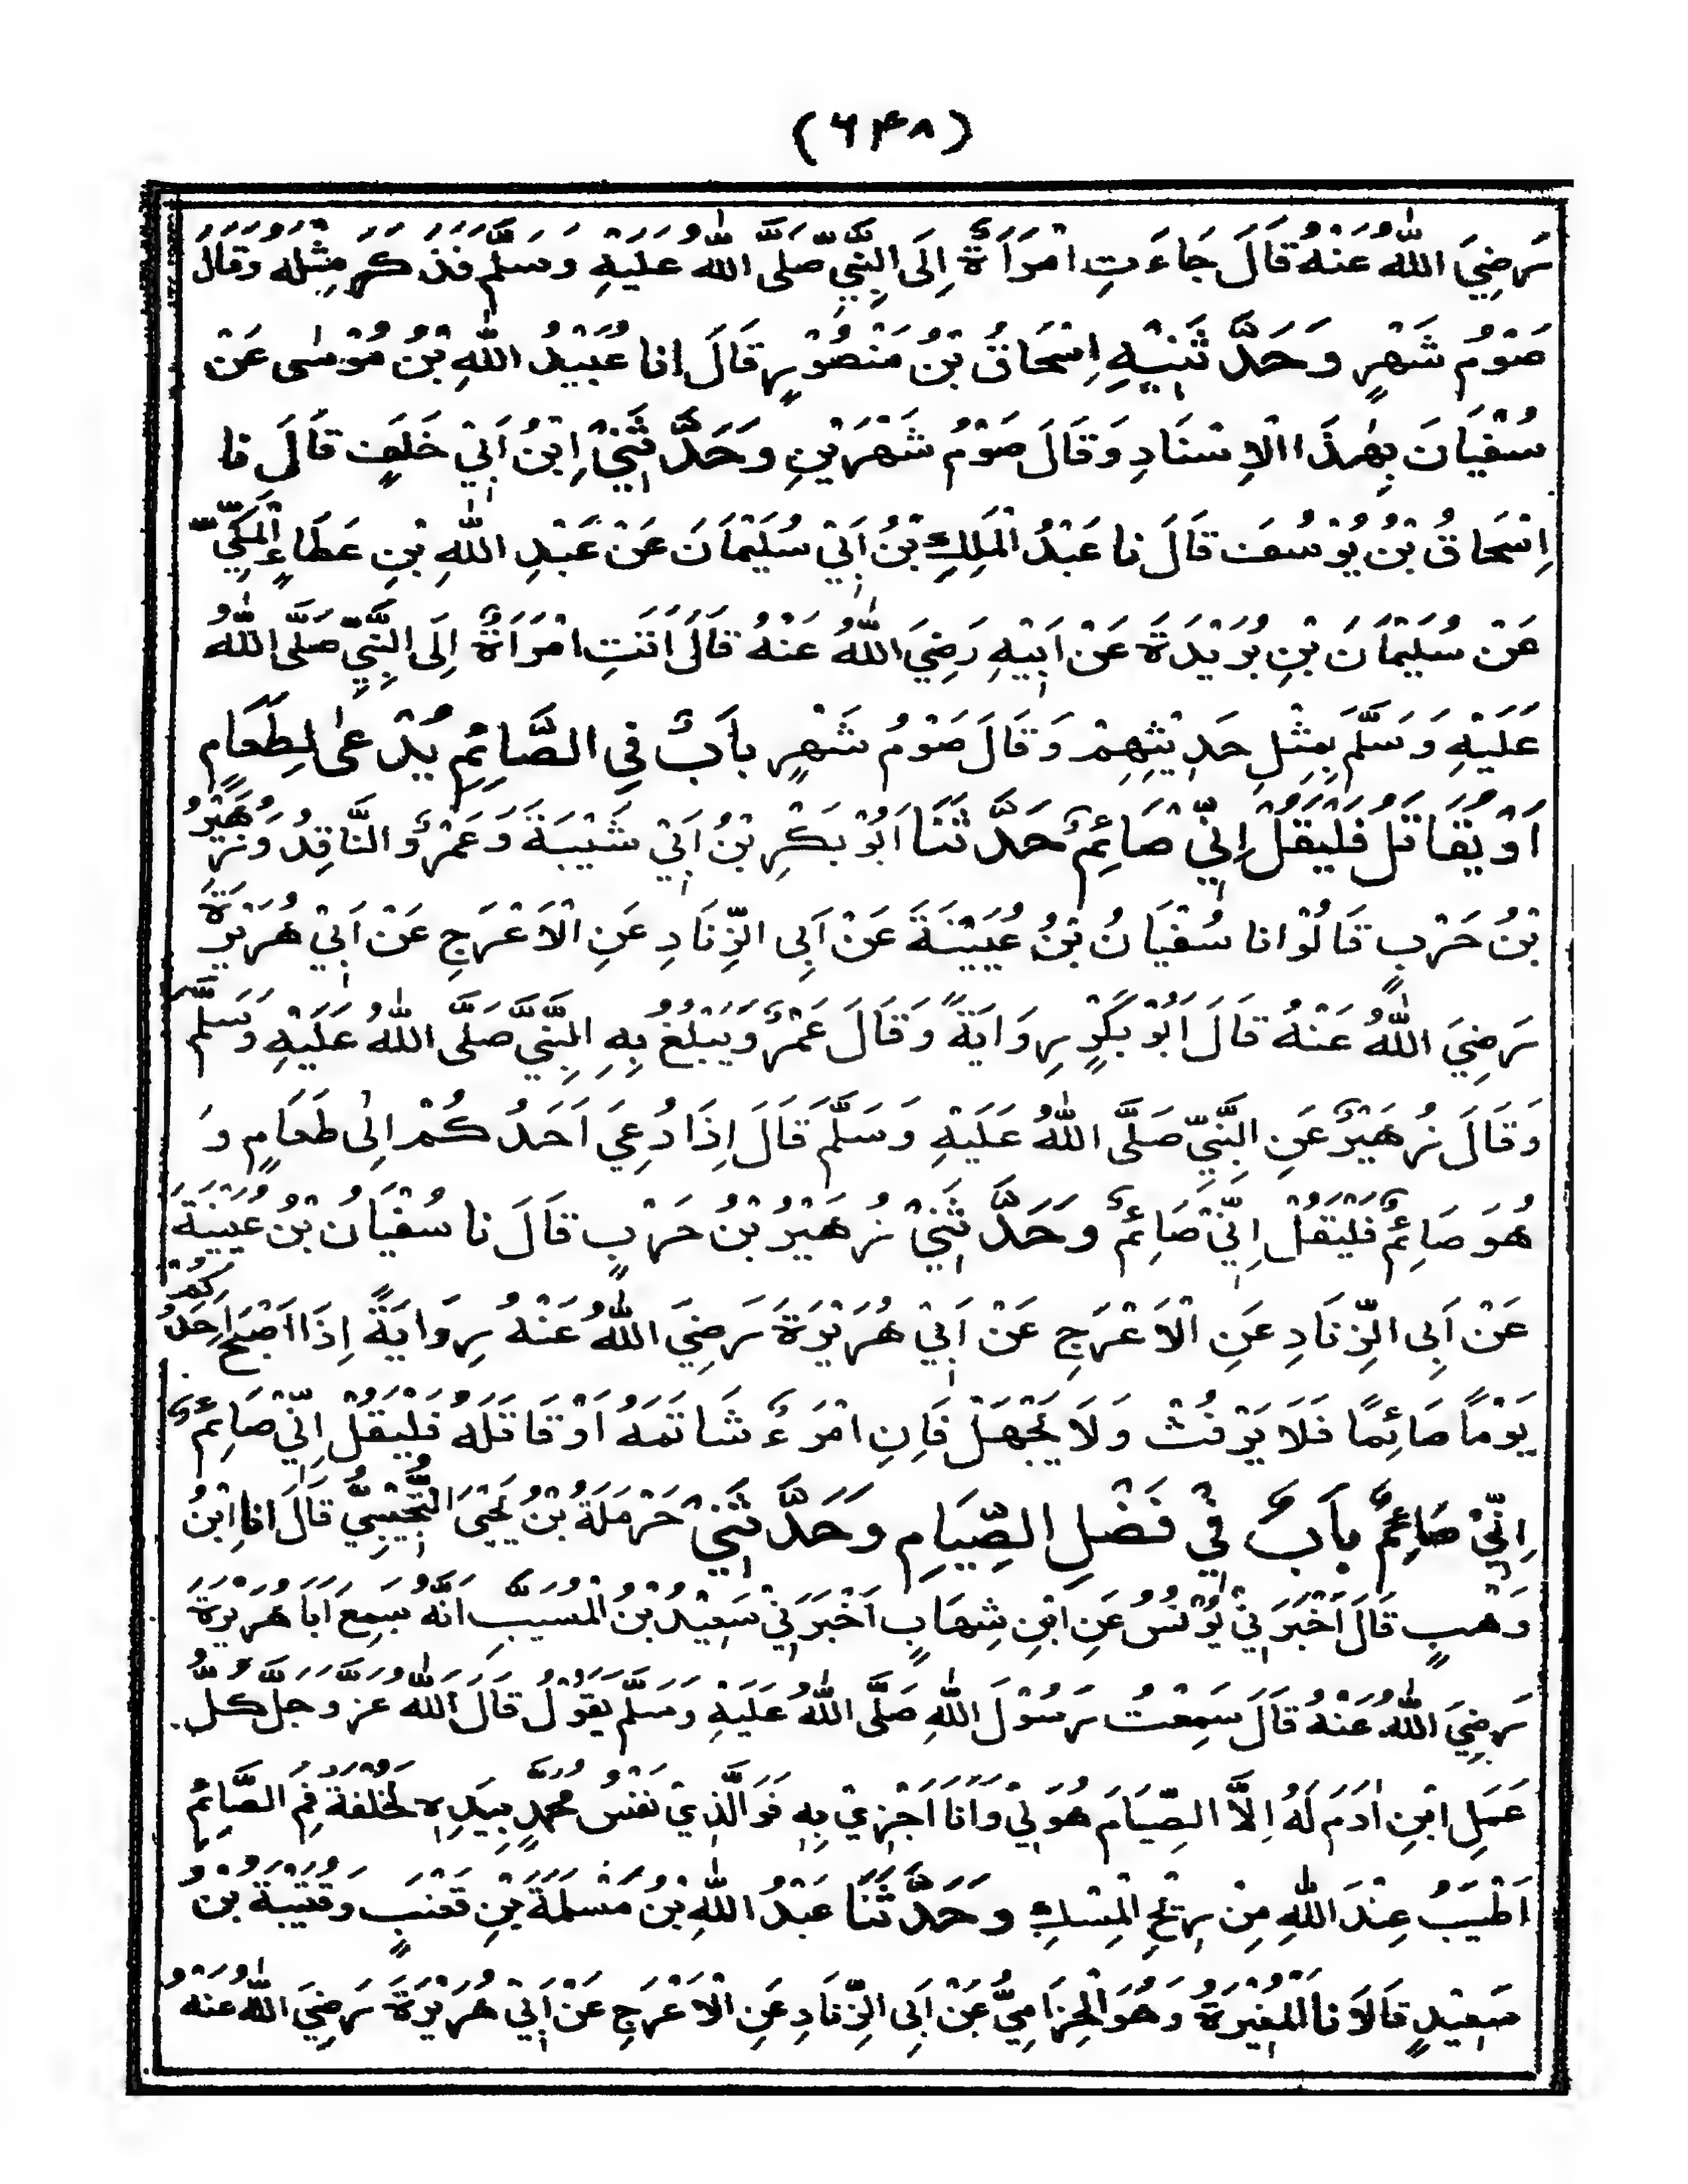 (۶۴۸)
رَضِيَ اللّٰهُ عَنْهُ قَالَ جَاءَتِ امْرَأَةٌ اِلَى النَّبِيِّ صَلَّى اللّٰهُ عَلَيْهِ وَسَلَّمَ فَذَكَرَ مِثْلَهُ وَقَالَ
صَوْمُ شَهْرٍ وَحَدَّثَنِيْهِ اِسْحَاقُ بْنُ مَنْصُوْرٍ قَالَ انا عُبَيْدُ اللّٰهِ بْنُ مُوْسٰى عَنْ
سُفْيَانَ بِهٰذَا الْاِسْنَادِ وَقَالَ صَوْمُ شَهْرَيْنِ وَحَدَّثَنِيْ اِبْنُ اَبِيْ خَلَفٍ قَالَ نا
اِسْحَاقُ بْنُ يُوْسُفَ قَالَ نا عَبْدُ الْمَلِكِ بْنُ اَبِيْ سُلَيْمَانَ عَنْ عَبْدِ اللّٰهِ بْنِ عَطَاءٍ الْمَكِّيِّ
عَنْ سُلَيْمَانَ بْنِ بُرَيْدَةَ عَنْ اَبِيْهِ رَضِيَ اللّٰهُ عَنْهُ قَالَ اَتَتِ امْرَاَةٌ اِلَى النَّبِيِّ صَلَّى اللّٰهُ
عَلَيْهِ وَسَلَّمَ بِمِثْلِ حَدِيْثِهِمْ وَقَالَ صَوْمُ شَهْرٍ بَابٌ فِي الصَّائِمِ يُدْعٰى لِطَعَامٍ
اَوْ يُقَاتَلُ فَلْيَقُلْ اِنِّيْ صَائِمٌ حَدَّثَنَا اَبُوْ بَكْرِ بْنُ اَبِيْ شَيْبَةَ وَعَمْرٌو النَّاقِدُ وَزُهَيْرُ
بْنُ حَرْبٍ قَالُوْا نا سُفْيَانُ بْنُ عُيَيْنَةَ عَنْ اَبِى الزِّنَادِ عَنِ الْاَعْرَجِ عَنْ اَبِيْ هُرَيْرَةَ
رَضِيَ اللّٰهُ عَنْهُ قَالَ اَبُوْ بَكْرٍ رِوَايَةً وَقَالَ عَمْرٌو يَبْلُغُ بِهِ النَّبِيَّ صَلَّى اللّٰهُ عَلَيْهِ وَسَلَّمَ
وَقَالَ زُهَيْرٌ عَنِ النَّبِيِّ صَلَّى اللّٰهُ عَلَيْهِ وَسَلَّمَ قَالَ اِذَا دُعِيَ اَحَدُكُمْ اِلٰى طَعَامٍ وَ
هُوَ صَائِمٌ فَلْيَقُلْ اِنِّيْ صَائِمٌ وَحَدَّثَنِيْ زُهَيْرُ بْنُ حَرْبٍ قَالَ نا سُفْيَانُ بْنُ عُيَيْنَةَ
عَنْ اَبِى الزِّنَادِ عَنِ الْاَعْرَجِ عَنْ اَبِيْ هُرَيْرَةَ رَضِيَ اللّٰهُ عَنْهُ رِوَايَةً اِذَا اَصْبَحَ اَحَدُكُمْ
يَوْمًا صَائِمًا فَلَا يَرْفُثْ وَلَا يَجْهَلْ فَاِنِ امْرَءٌ شَاتَمَهُ اَوْ قَاتَلَهُ فَلْيَقُلْ اِنِّيْ صَائِمٌ
اِنِّيْ صَائِمٌ بَابٌ فِيْ فَضْلِ الصِّيَامِ وَحَدَّثَنِيْ حَرْمَلَةُ بْنُ يَحْيَى التُّجِيْبِيُّ قَالَ انا ابْنُ
وَهْبٍ قَالَ اَخْبَرَنِيْ يُوْنُسُ عَنِ ابْنِ شِهَابٍ اَخْبَرَنِيْ سَعِيْدُ بْنُ الْمُسَيَّبِ اَنَّهُ سَمِعَ اَبَا هُرَيْرَةَ
رَضِيَ اللّٰهُ عَنْهُ قَالَ سَمِعْتُ رَسُوْلَ اللّٰهِ صَلَّى اللّٰهُ عَلَيْهِ وَسَلَّمَ يَقُوْلُ قَالَ اللّٰهُ عَزَّ وَجَلَّ كُلُّ
عَمَلِ ابْنِ اٰدَمَ لَهُ اِلَّا الصِّيَامَ هُوَ لِيْ وَاَنَا اَجْزِيْ بِهِ فَوَالَّذِيْ نَفْسُ مُحَمَّدٍ بِيَدِهٖ لَخُلْفَةُ فَمِ الصَّائِمِ
اَطْيَبُ عِنْدَ اللّٰهِ مِنْ رِيْحِ الْمِسْكِ وَحَدَّثَنَا عَبْدُ اللّٰهِ بْنُ مَسْلَمَةَ بْنِ قَعْنَبٍ وَقُتَيْبَةُ بْنُ
سَعِيْدٍ قَالَا نا الْمُغِيْرَةُ وَهُوَ الْحِزَامِيُّ عَنْ اَبِى الزِّنَادِ عَنِ الْاَعْرَجِ عَنْ اَبِيْ هُرَيْرَةَ رَضِيَ اللّٰهُ عَنْهُ